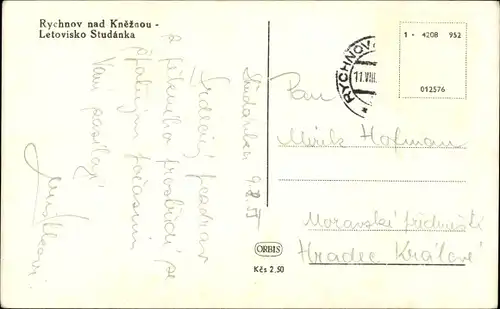 Rychnov nad Kněžnou -
Letovisko Studánka
1 - 4208 952
012576
RYCHNOV
11.VIII.
Studánka 9.8.
Srdečný pozdrav
z pěkného prostředí se
špatným počasím
Vám posílají
Pan
Mirek Hofman
Moravské předměstí
Hradec Králové
ORBIS
Kčs 2,50